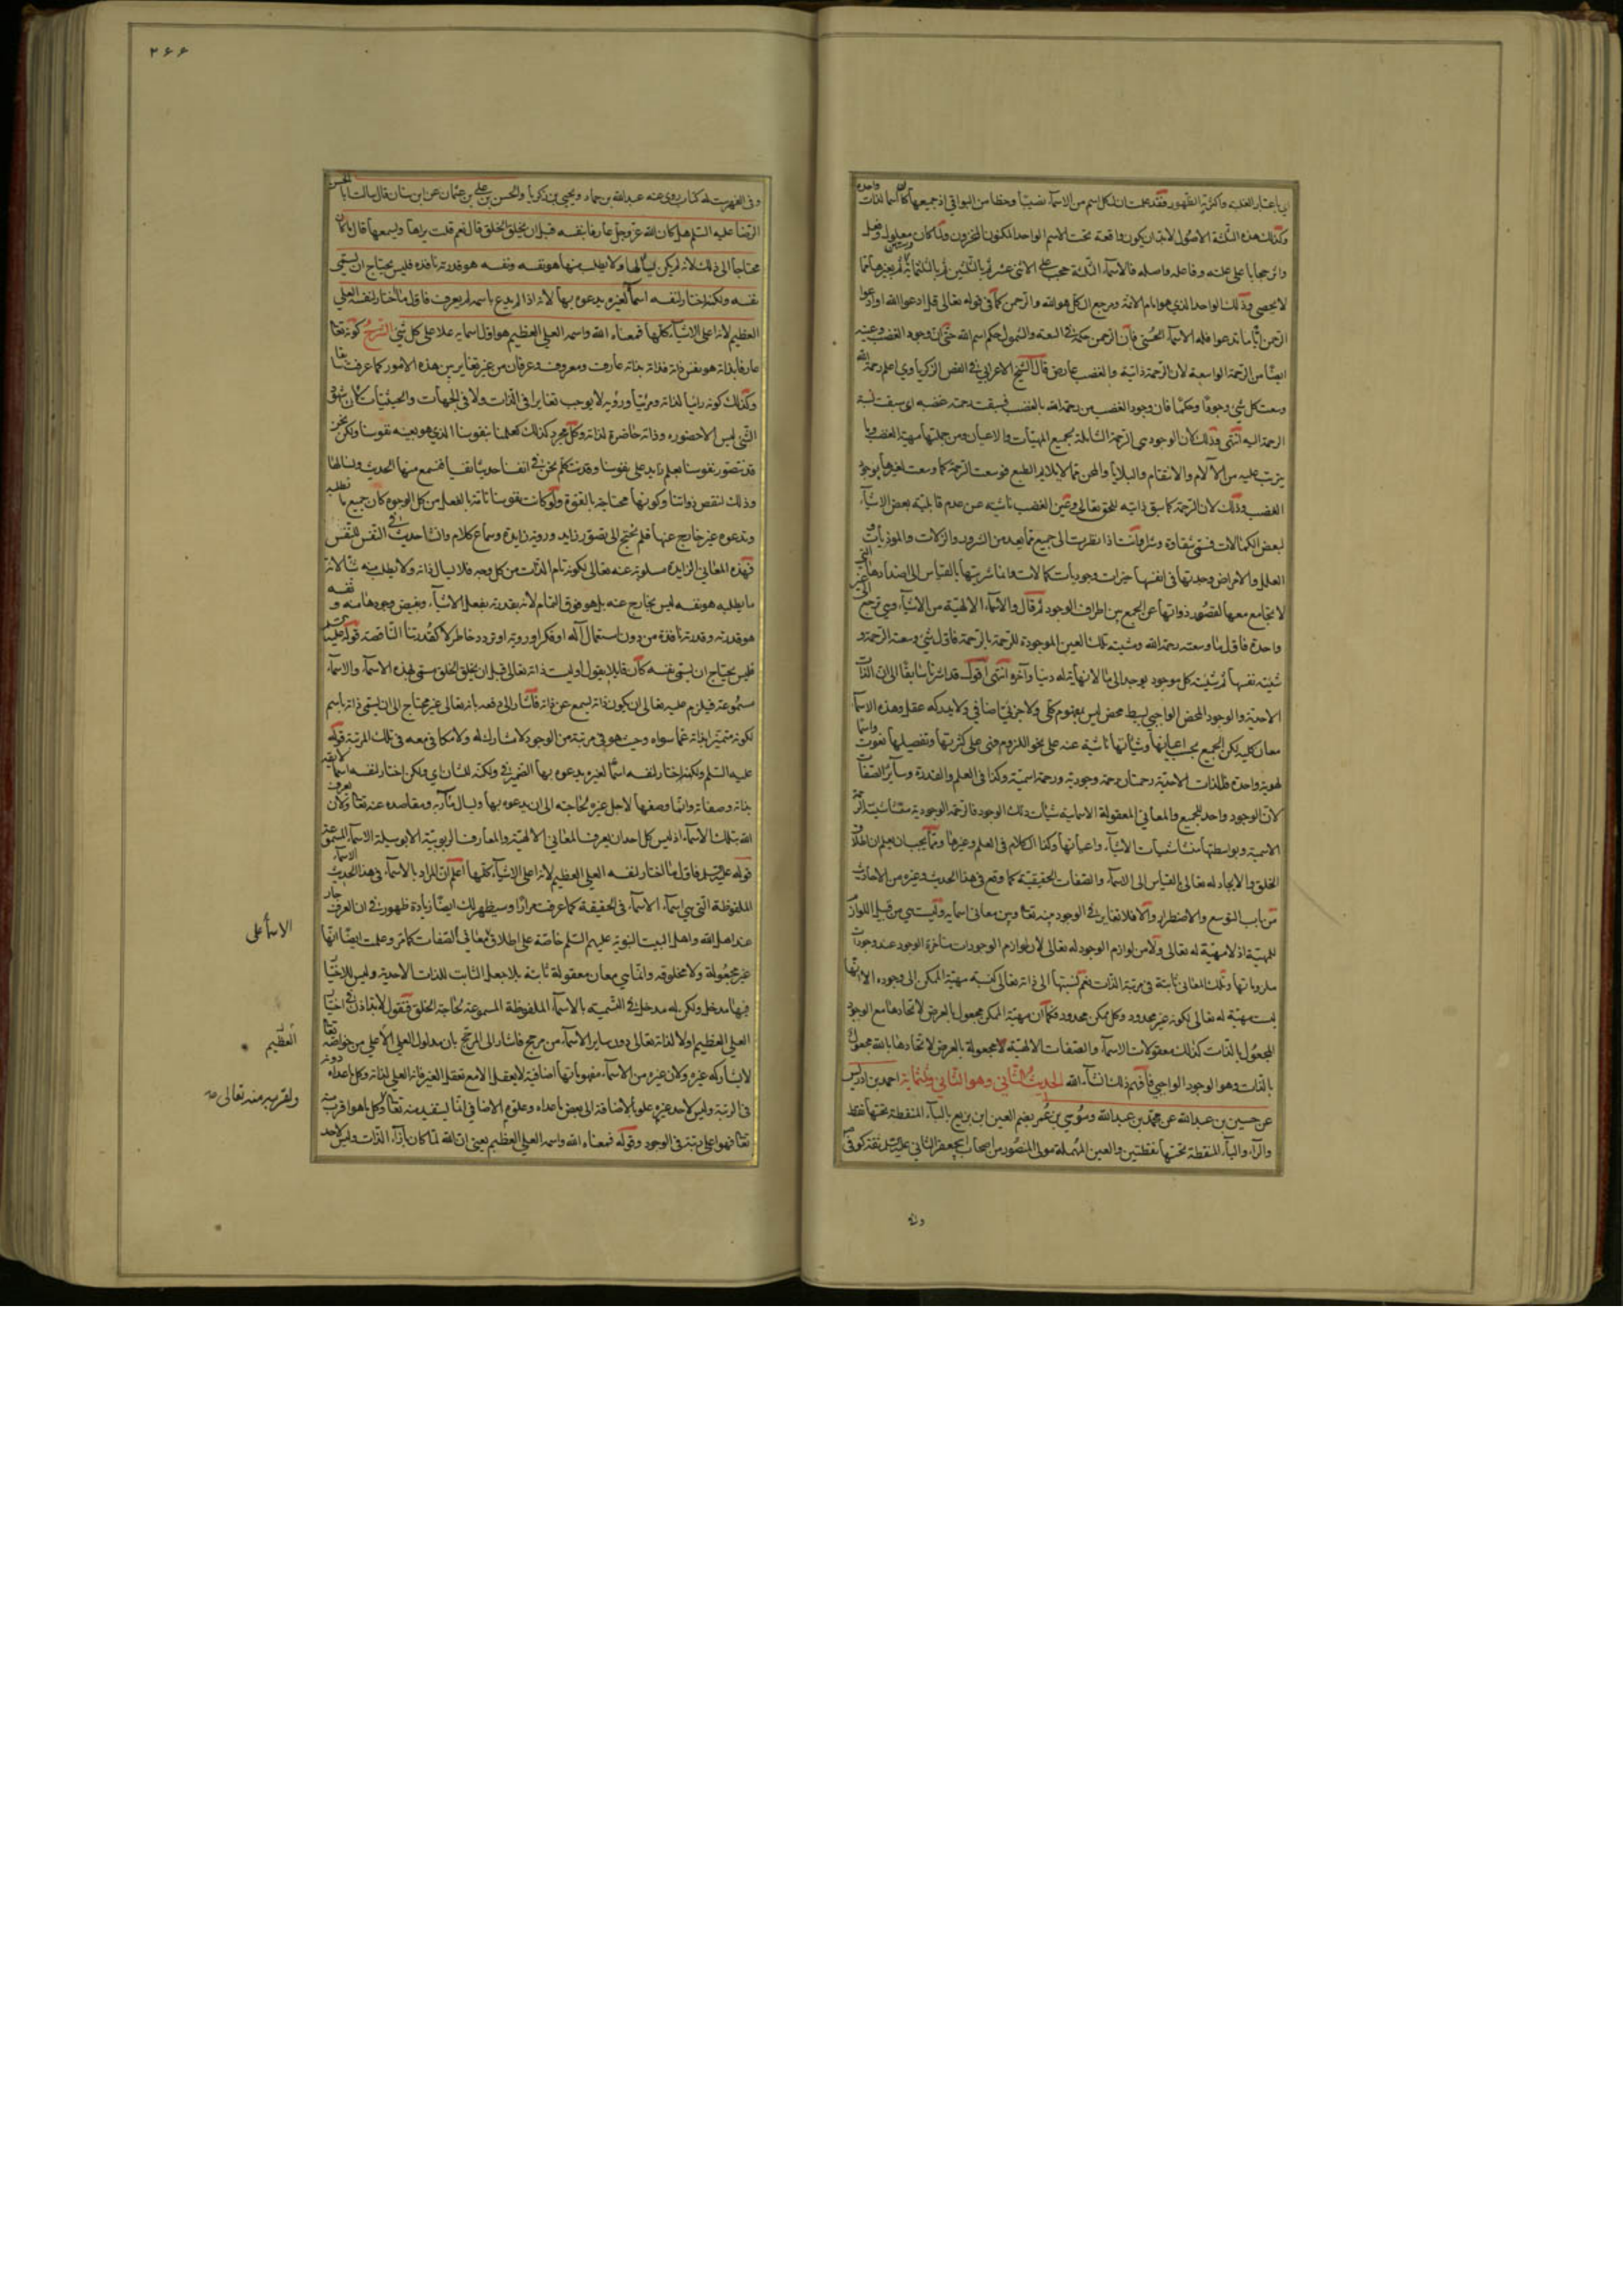 اي باعتبار الغلبه واكثرية الظهور فقد علمت ان لكل اسم من الاسماء نصيبا وحظا من البواقي اذ جميعها كانها لذات واحدة
وكذلك هذه الثلثة الاصول لابد ان يكون واقعة تحت الاسم الواحد المكنون المخزون ولما كان معلول وفعل
وانر حجابا على علته وفاعله واصله فالاسماء الثلثة حجب على الاثنى عشر ثم بالثلثين ثم بالثلثمائة وستين ثم بغيرها مما
لا يحصى وذلك الواحد الذي هو امام الائمة ومرجع الكل هو الله والرحمن كما في قوله تعالى قل ادعوا الله او ادعوا
الرحمن ايا ما تدعوا فله الاسماء الحسنى فان الرحمن حكمه في السعة والشمول حكم اسم الله حتى ان وجود الغضب وعينه
ايضا من الرحمة الواسعة لان الرحمة ذاتية والغضب عارض قال الشيخ الاعرابي في الفص الزكرياوي اعلم رحمة الله
وسعت كل شيء وجودا وحكما فان وجود الغضب من رحمة الله بالغضب فسبقت رحمته غضبه اي سبقت نسبة
الرحمة اليه انتهى وذلك لان الوجود هي الرحمة الشاملة بجميع المهيات والاعيان ومن جملتها مهية الغضب وما
يترتب عليه من الآلام والانتقام والبلايا والمحن مما لا يلايم الطبع فوسعت الرحمة كما وسعت لغيرها بوجود
الغضب وذلك لان الرحمة كما سبق ذاتيه للحق تعالى وعين الغضب ناشية من عدم قابلية بعض الاشياء
لبعض الكمالات فتسمى شقاوة وشرا وانت اذا نظرت الى جميع مما يعد من الشرور والزلات والموذيات و
العلل والامراض وجدتها في انفسها خيرات وجوديات كمالات وانما شريتها بالقياس الى اضدادها التي
لا تجامع معها لقصور ذواتها عن الجمع بين اطراف الوجود ثم قال والاسماء الالهية من الاشياء وهي ترجع الى عين
واحدة فاول ما وسعته رحمة الله وشيئية تلك العين الموجودة للرحمة بالرحمة فاول شيء وسعته الرحمة و
شيئية نفسها ثم شيئية كل موجود يوجد الى ما لا نهاية له دنيا وآخرة انتهى اقول قد اشرنا سابقا الى ان الذات
الاحدية والوجود المحض الواجبي بسيط محض ليس بمفهوم كلي ولا جزئي اضافي ولا يدركه عقل وهذه الاسماء
معان كلية يمكن الجميع بحسب اعيانها وشيئاتها ناشية عنه على نحو اللزوم فهي على كثرتها وتفصيلها نعوت واسماء
لهوية واحدة فللذات الاحدية رحمتان رحمة وجودية ورحمة اسمية وكذا في العلم والقدرة وساير الصفات
لان الوجود واحد للجميع والمعاني المعقولة الاسمائية شيئات ذلك الوجود فالرحمة الوجودية منشأ شيئية الرحمة
الاسمية وبواسطتها منشأ شيئيات الاشياء واعيانها وكذا الكلام في العلم وغيرها ومما يجب ان يعلم ان اطلاق
الخلق والايجاد له تعالى بالقياس الى الاسماء والصفات الحقيقية كما وقع في هذا الحديث وغيره من الاحاديث
من باب التوسع والاضطرار والا فلا تغاير في الوجود بينه تعالى وبين معاني اسمايه وليست هي من قبيل اللوازم
للمهية اذ لا مهية له تعالى ولا من لوازم الوجود له تعالى لان لوازم الوجودات متأخرة الوجود عند وجودات
ملزوماتها وتلك المعاني ثابتة في مرتبة الذات نعم نسبتها الى ذاته تعالى كنسبة مهية الممكن الى وجوده الا انها
ليست مهية له تعالى لكونه غير محدود وكل ممكن محدود فكما ان مهية الممكن مجعول بالعرض لاتحادها مع الوجود
المجعول بالذات كذلك معقولات الاسماء والصفات الالهية لا مجعولة بالعرض لاتحادها بالله مجعول
بالذات وهو الوجود الواجبي فافهم ذلك انشاء الله الحديث الثاني وهو الثاني وثلثمائة احمد بن ادريس
عن حسين بن عبدالله عن محمد بن عبدالله وموسى بن عمر بضم العين ابن بزيع بالباء المنقطة تحتها نقطة
والزاء والياء المنقطة تحتها نقطتين والعين المهملة مولى المنصور من اصحاب ابي جعفر الثاني عليه السلم ثقة كوفي
وله
٢٦٦
وفي الفهرست له كتاب روى عنه عبدالله بن حماد ويحيى بن زكريا والحسن بن علي بن عثمان عن ابن سنان قال سالت ابا الحسن
الرضا عليه السلم هل كان الله عز وجل عارفا بنفسه قبل ان يخلق الخلق قال نعم قلت يراها ويسمعها قال ما كان
محتاجا الى ذلك لانه لم يكن يسألها ولا يطلب منها هو نفسه ونفسه هو قدرته نافذة فليس يحتاج ان يسمى
نفسه ولكنه اختار لنفسه اسماء لغيره يدعوه بها لانه اذا لم يدع باسمه لم يعرف فاول ما اختار لنفسه العلي
العظيم لانه اعلى الاشياء كلها فمعناه الله واسمه العلي العظيم هو اول اسمايه علا على كل شيء الشرح كونه تعالى
عارفا بذاته هو نفس ذاته فذاته بذاته عارف ومعروف وعرفان من غير تغاير بين هذه الامور كما عرفت سابقا
وكذلك كونه رائيا لذاته ومرئيا ورؤية لا يوجب تغايرا في الذات ولا في الجهات والحيثيات لان شهود
الشيء ليس الا حضوره وذاته حاضرة لذاته وكل مجرد كذلك كعلمنا بنفوسنا الذي هو بعينه نفوسنا ولكن نحن
قد نتصور نفوسنا بعلم زايد على نفوسنا وقد نتكلم نحن في انفسنا حديثا نفسيا فنسمع منها الحديث ونسألها
وذلك لنقص ذواتنا وكونها محتاجة بالقوة ولو كانت نفوسنا تامة بالفعل من كل الوجوه لكان جميع ما نطلبه
وندعوه غير خارج عنها فلم نحتج الى تصور زايد ورؤية زايدة وسماع كلام وانشاء حديث في النفس للنفس
فهذه المعاني الزايدة مسلوبة عنه تعالى لكونه تام الذات من كل وجه فلا يسال ذاته ولا يطلب منه شيئا لانه
ما يطلبه هو نفسه ليس بخارج عنه بل هو فوق التمام لانه بقدرته يفعل الاشياء ويفيض وجودها منه و نفسه
هو قدرته وقدرته نافذة من دون استعمال آلة او فكر او روية او تردد خاطر لا كقدرتنا الناقصة قوله عليه السلم
فليس يحتاج ان يسمى نفسه كان قايلا يقول او ليست ذاته تعالى قبل ان يخلق الخلق مسمى بهذه الاسماء والاسماء
مسموعة فيلزم عليه تعالى ان يكون ذاته يسمع عن ذاته فاشار الى دفعه بانه تعالى غير محتاج الى ان يسمى ذاته باسم
لكونه متميزا بذاته عما سواه وحيث هو في مرتبة من الوجود لا مشارك له ولا مكافئ معه في تلك المرتبة قوله
عليه السلم ولكنه اختار لنفسه اسما لغيره يدعوه بها الضمير في ولكنه للشان اي ولكن اختار لنفسه اسماء لايقه
بذاته وصفاته وانما وصفها لاجل غيره لحاجته الى ان يدعوه بها ويسال مآربه ومقاصده عنه تعالى ولان يعرف
الله بتلك الاسماء اذ ليس كل احد ان يعرف المعاني الالهية والمعارف الربوبية الا بوسيلة الاسماء المسموعة
قوله عليه السلم فاول ما اختار لنفسه العلي العظيم لانه اعلى الاشياء كلها اعلم ان المراد بالاسماء في هذا الحديث الاسماء
الملفوظة التي هي اسماء الاسماء في الحقيقة كما عرفت مرارا وسيظهر لك ايضا زيادة ظهور في ان العرف جار
عند اهل الله واهل البيت النبوية عليهم السلم خاصة على اطلاق معاني الصفات كما مر وعلمت ايضا انها
غير مجعولة ولا مخلوقة وانما هي معان معقولة ثابتة بلا جعل الثابت للذات الاحدية وليس للاختيار
فيها مدخل ولكن له مدخل في التسمية بالاسماء الملفوظة المسموعة لحاجة الخلق فنقول لابد اذن في اختيار
العلي العظيم اولا لذاته تعالى دون ساير الاسماء من مرجح فاشار الى المرجح بان مدلول العلي الاعلى من خواصه تعالى
لا يشاركه غيره ولان غيره من الاسماء مفهوماتها اضافية لا يعقل الا مع تعقل الغير فانه العلي لذاته وكل ما عداه دونه
في الرتبة وليس لاحد غيره علو بالاضافة الى بعض ما عداه وعلوه الاضافي انما يستفيد منه تعالى وكل ما هو اقرب منه
تعالى فهو اعلى رتبة في الوجود وقوله فمعناه الله واسمه العلي العظيم يعني ان الله لما كان بازاء الذات وليس لاحد
الاسماء على
العظيم
ولقربه منه تعالى